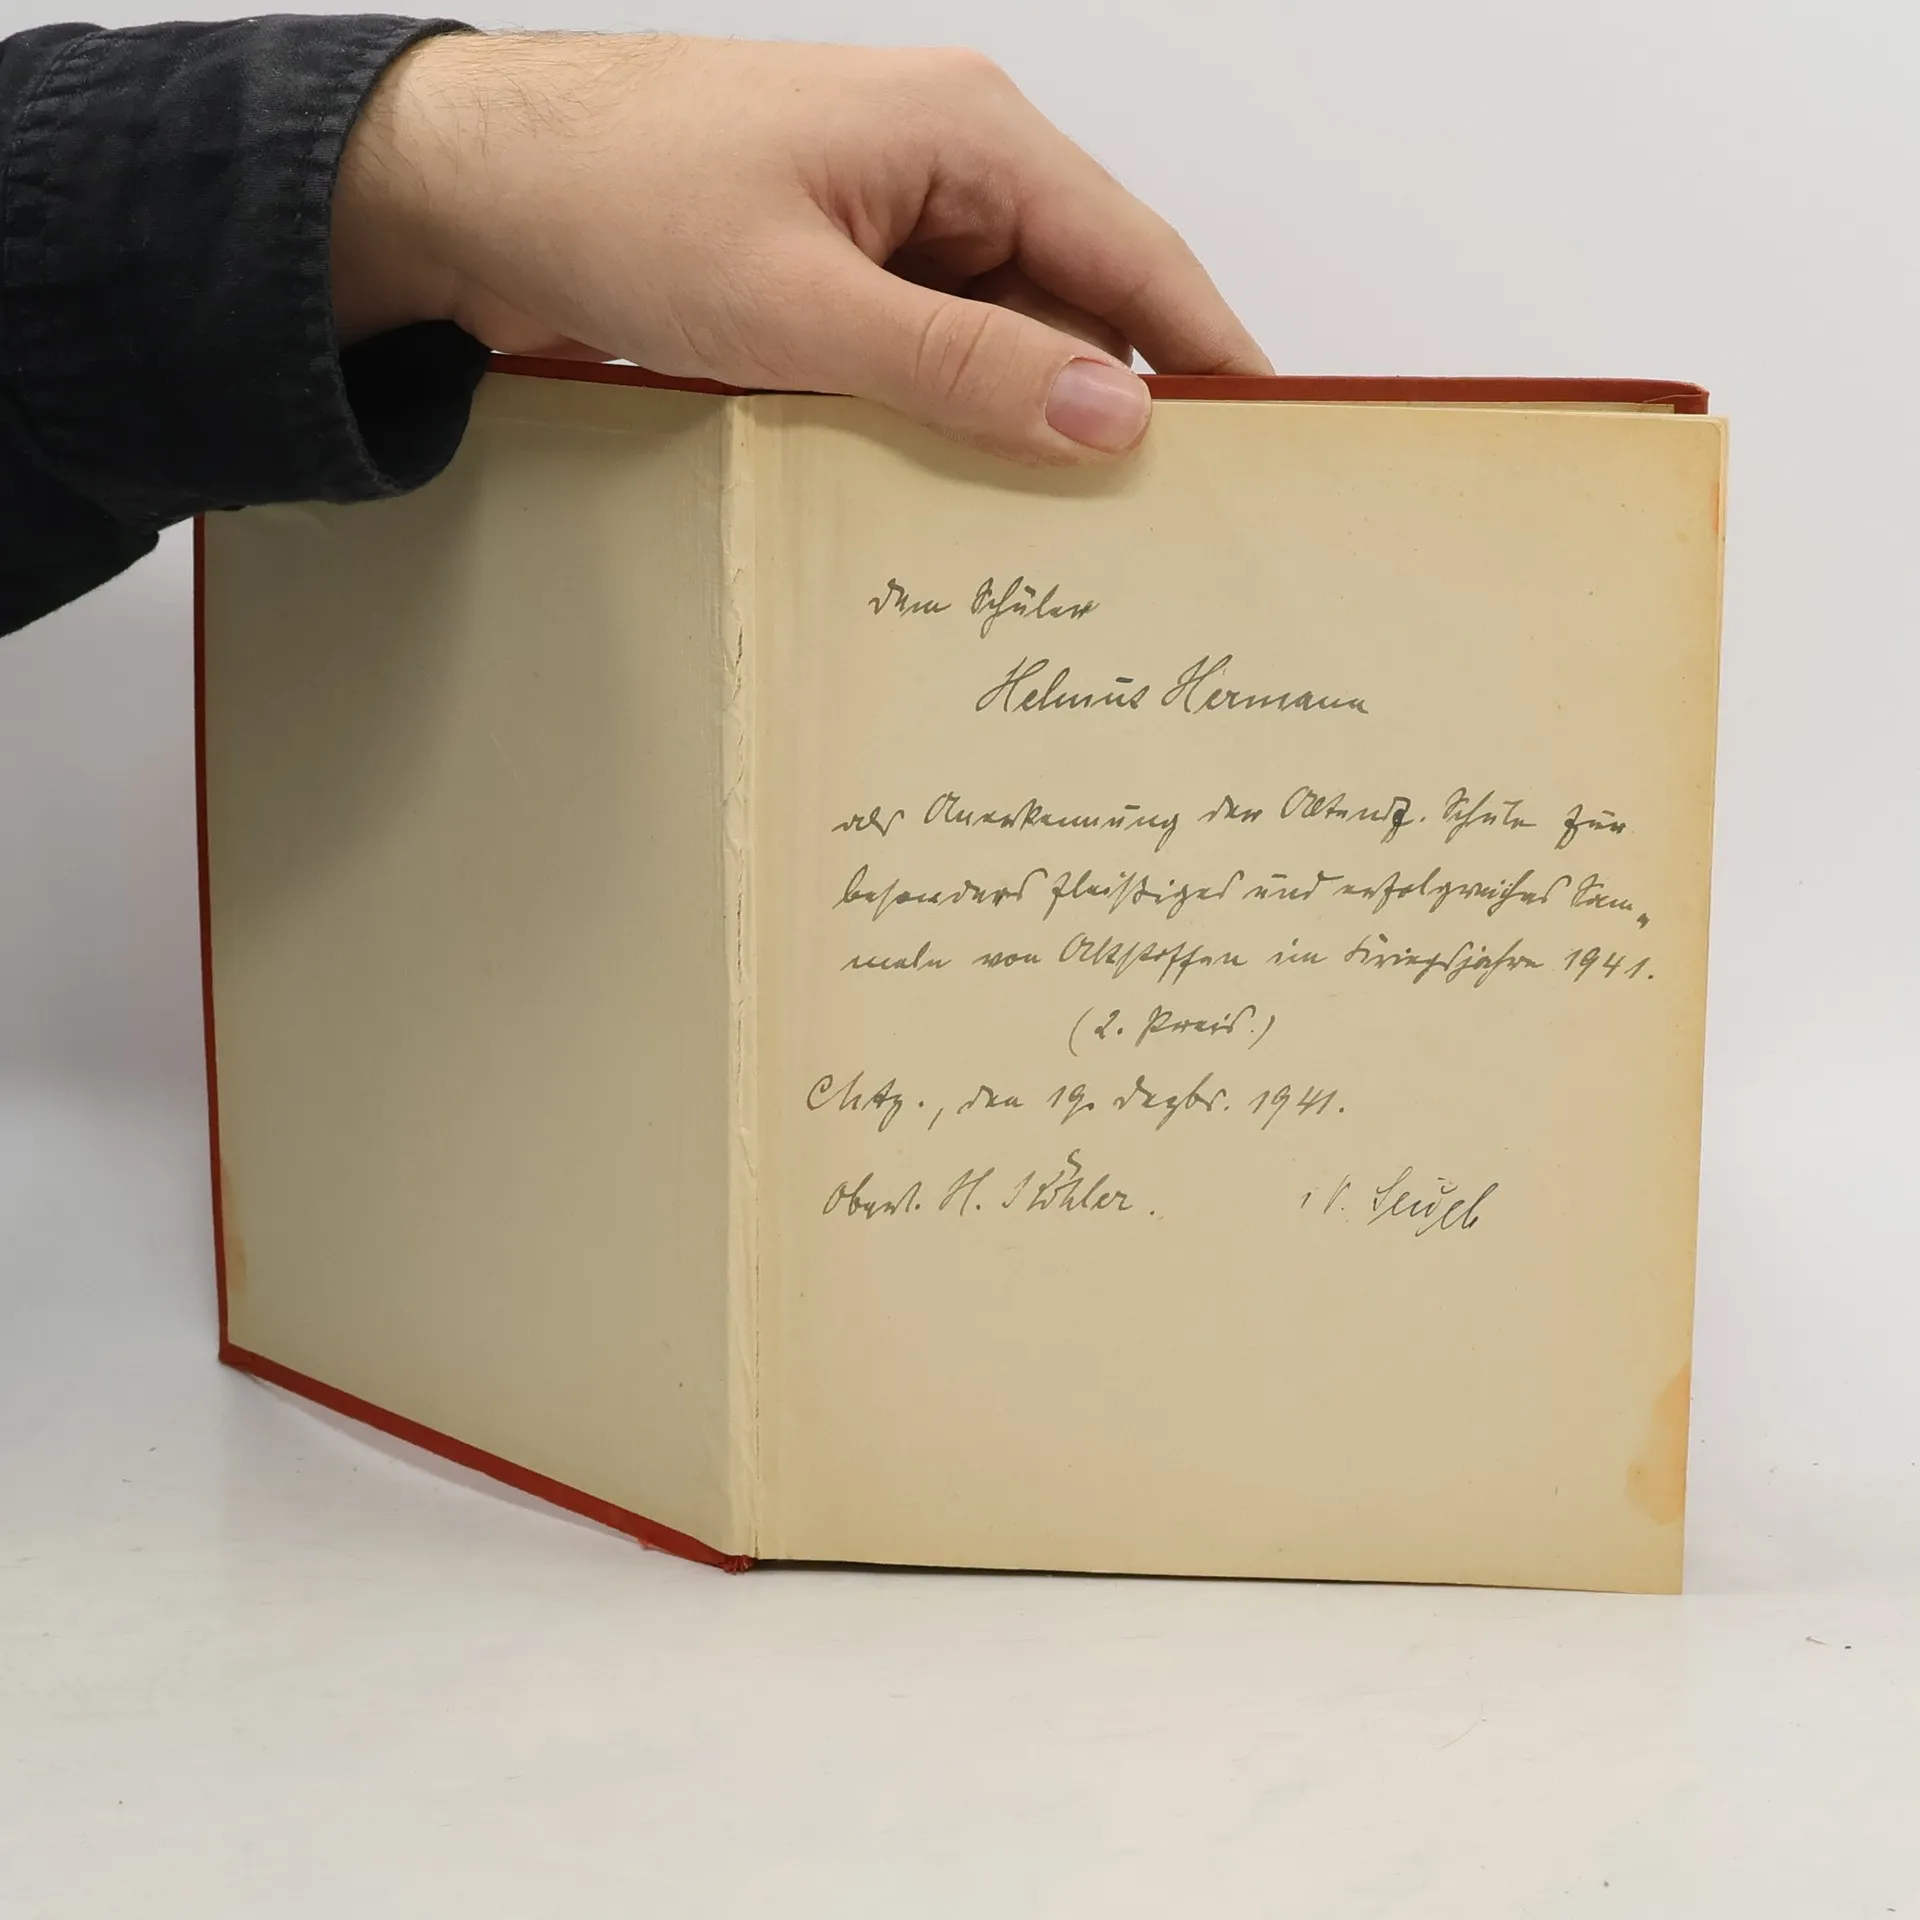 Dem Schüler
Helmut Hermann
als Anerkennung der Altendf. Schule für
besonders fleißiges und erfolgreiches Sam-
meln von Altstoffen im Kriegsjahre 1941.
(2. Preis.)
Chtz., den 19. Dezbr. 1941.
H. Köhler.